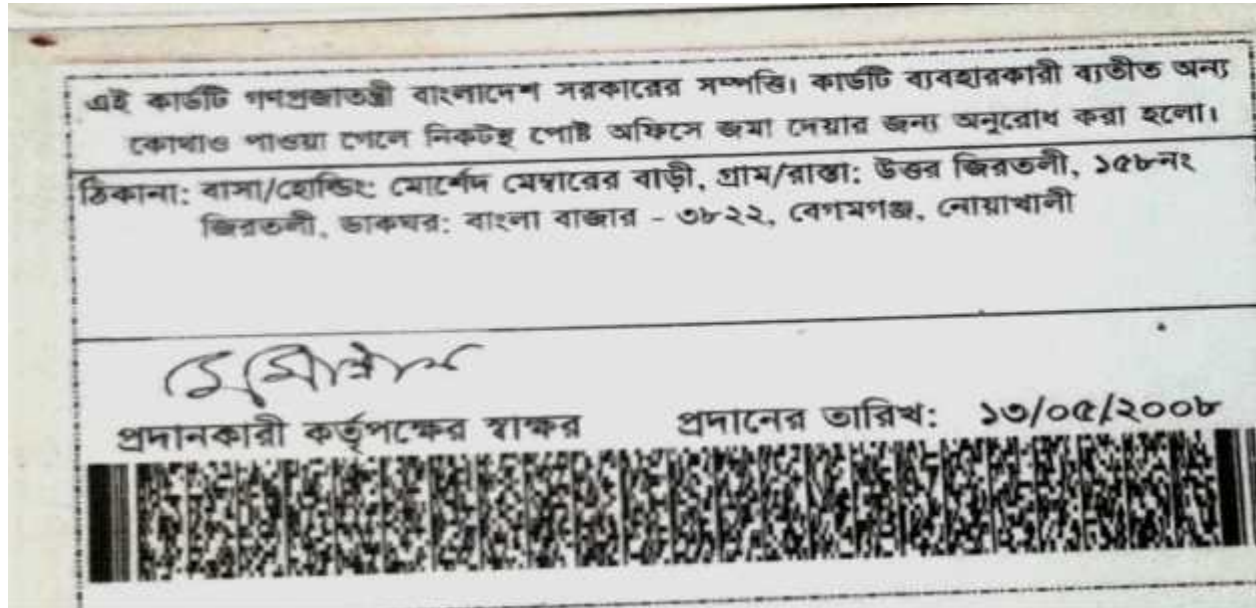 এই কার্ডটি গণপ্রজাতন্ত্রী বাংলাদেশ সরকারের সম্পত্তি। কার্ডটি ব্যবহারকারী ব্যতীত অন্য
কোথাও পাওয়া গেলে নিকটস্থ পোষ্ট অফিসে জমা দেয়ার জন্য অনুরোধ করা হলো।
ঠিকানা: বাসা/হোল্ডিং: মোর্শেদ মেম্বারের বাড়ী, গ্রাম/রাস্তা: উত্তর জিরতলী, ১৫৮নং
জিরতলী, ডাকঘর: বাংলা বাজার - ৩৮২২, বেগমগঞ্জ, নোয়াখালী
প্রদানকারী কর্তৃপক্ষের স্বাক্ষর প্রদানের তারিখ: ১৩/০৫/২০০৮